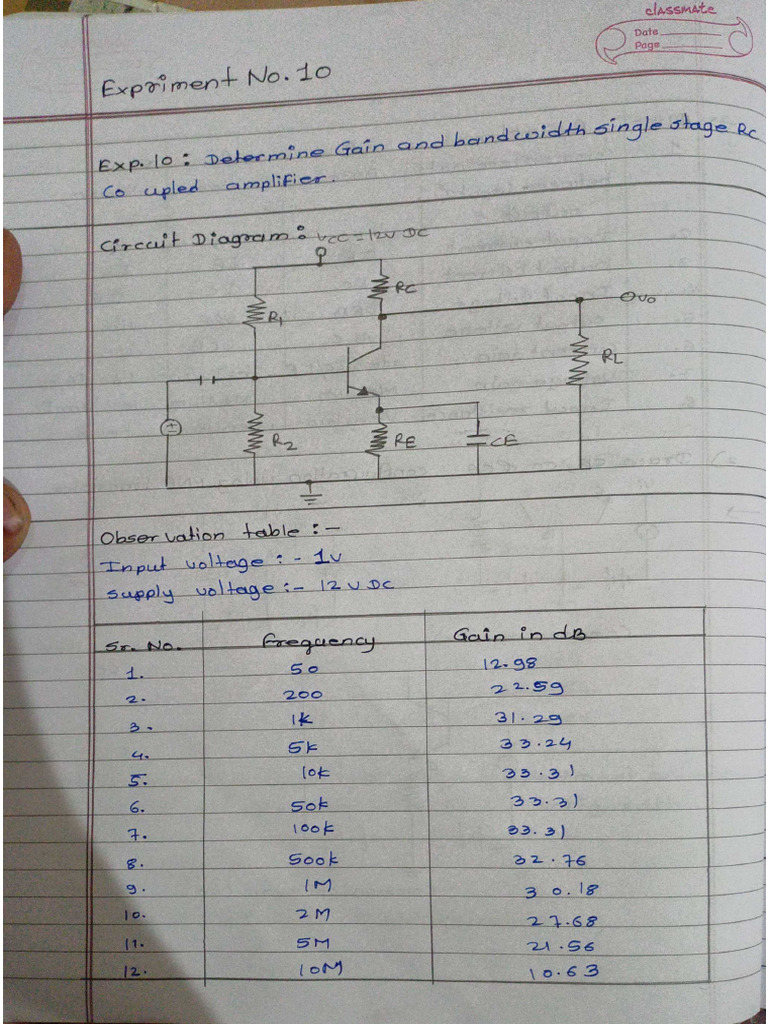 classmate
Date
Page
Expriment No. 10
Exp. 10 : Determine Gain and bandwidth single stage Rc
Co upled amplifier.
Circuit Diagram : VCC = 12V DC
RC
R1
Vo
RL
R2
RE
CE
Observation table :-
Input voltage :- 1v
supply voltage :- 12 V DC
Sr. No. Frequency Gain in dB
1. 50 12.98
2. 200 22.59
3. 1k 31.29
4. 5k 33.24
5. 10k 33.31
6. 50k 33.31
7. 100k 33.31
8. 500k 32.76
9. 1M 30.18
10. 2M 27.68
11. 5M 21.56
12. 10M 10.63